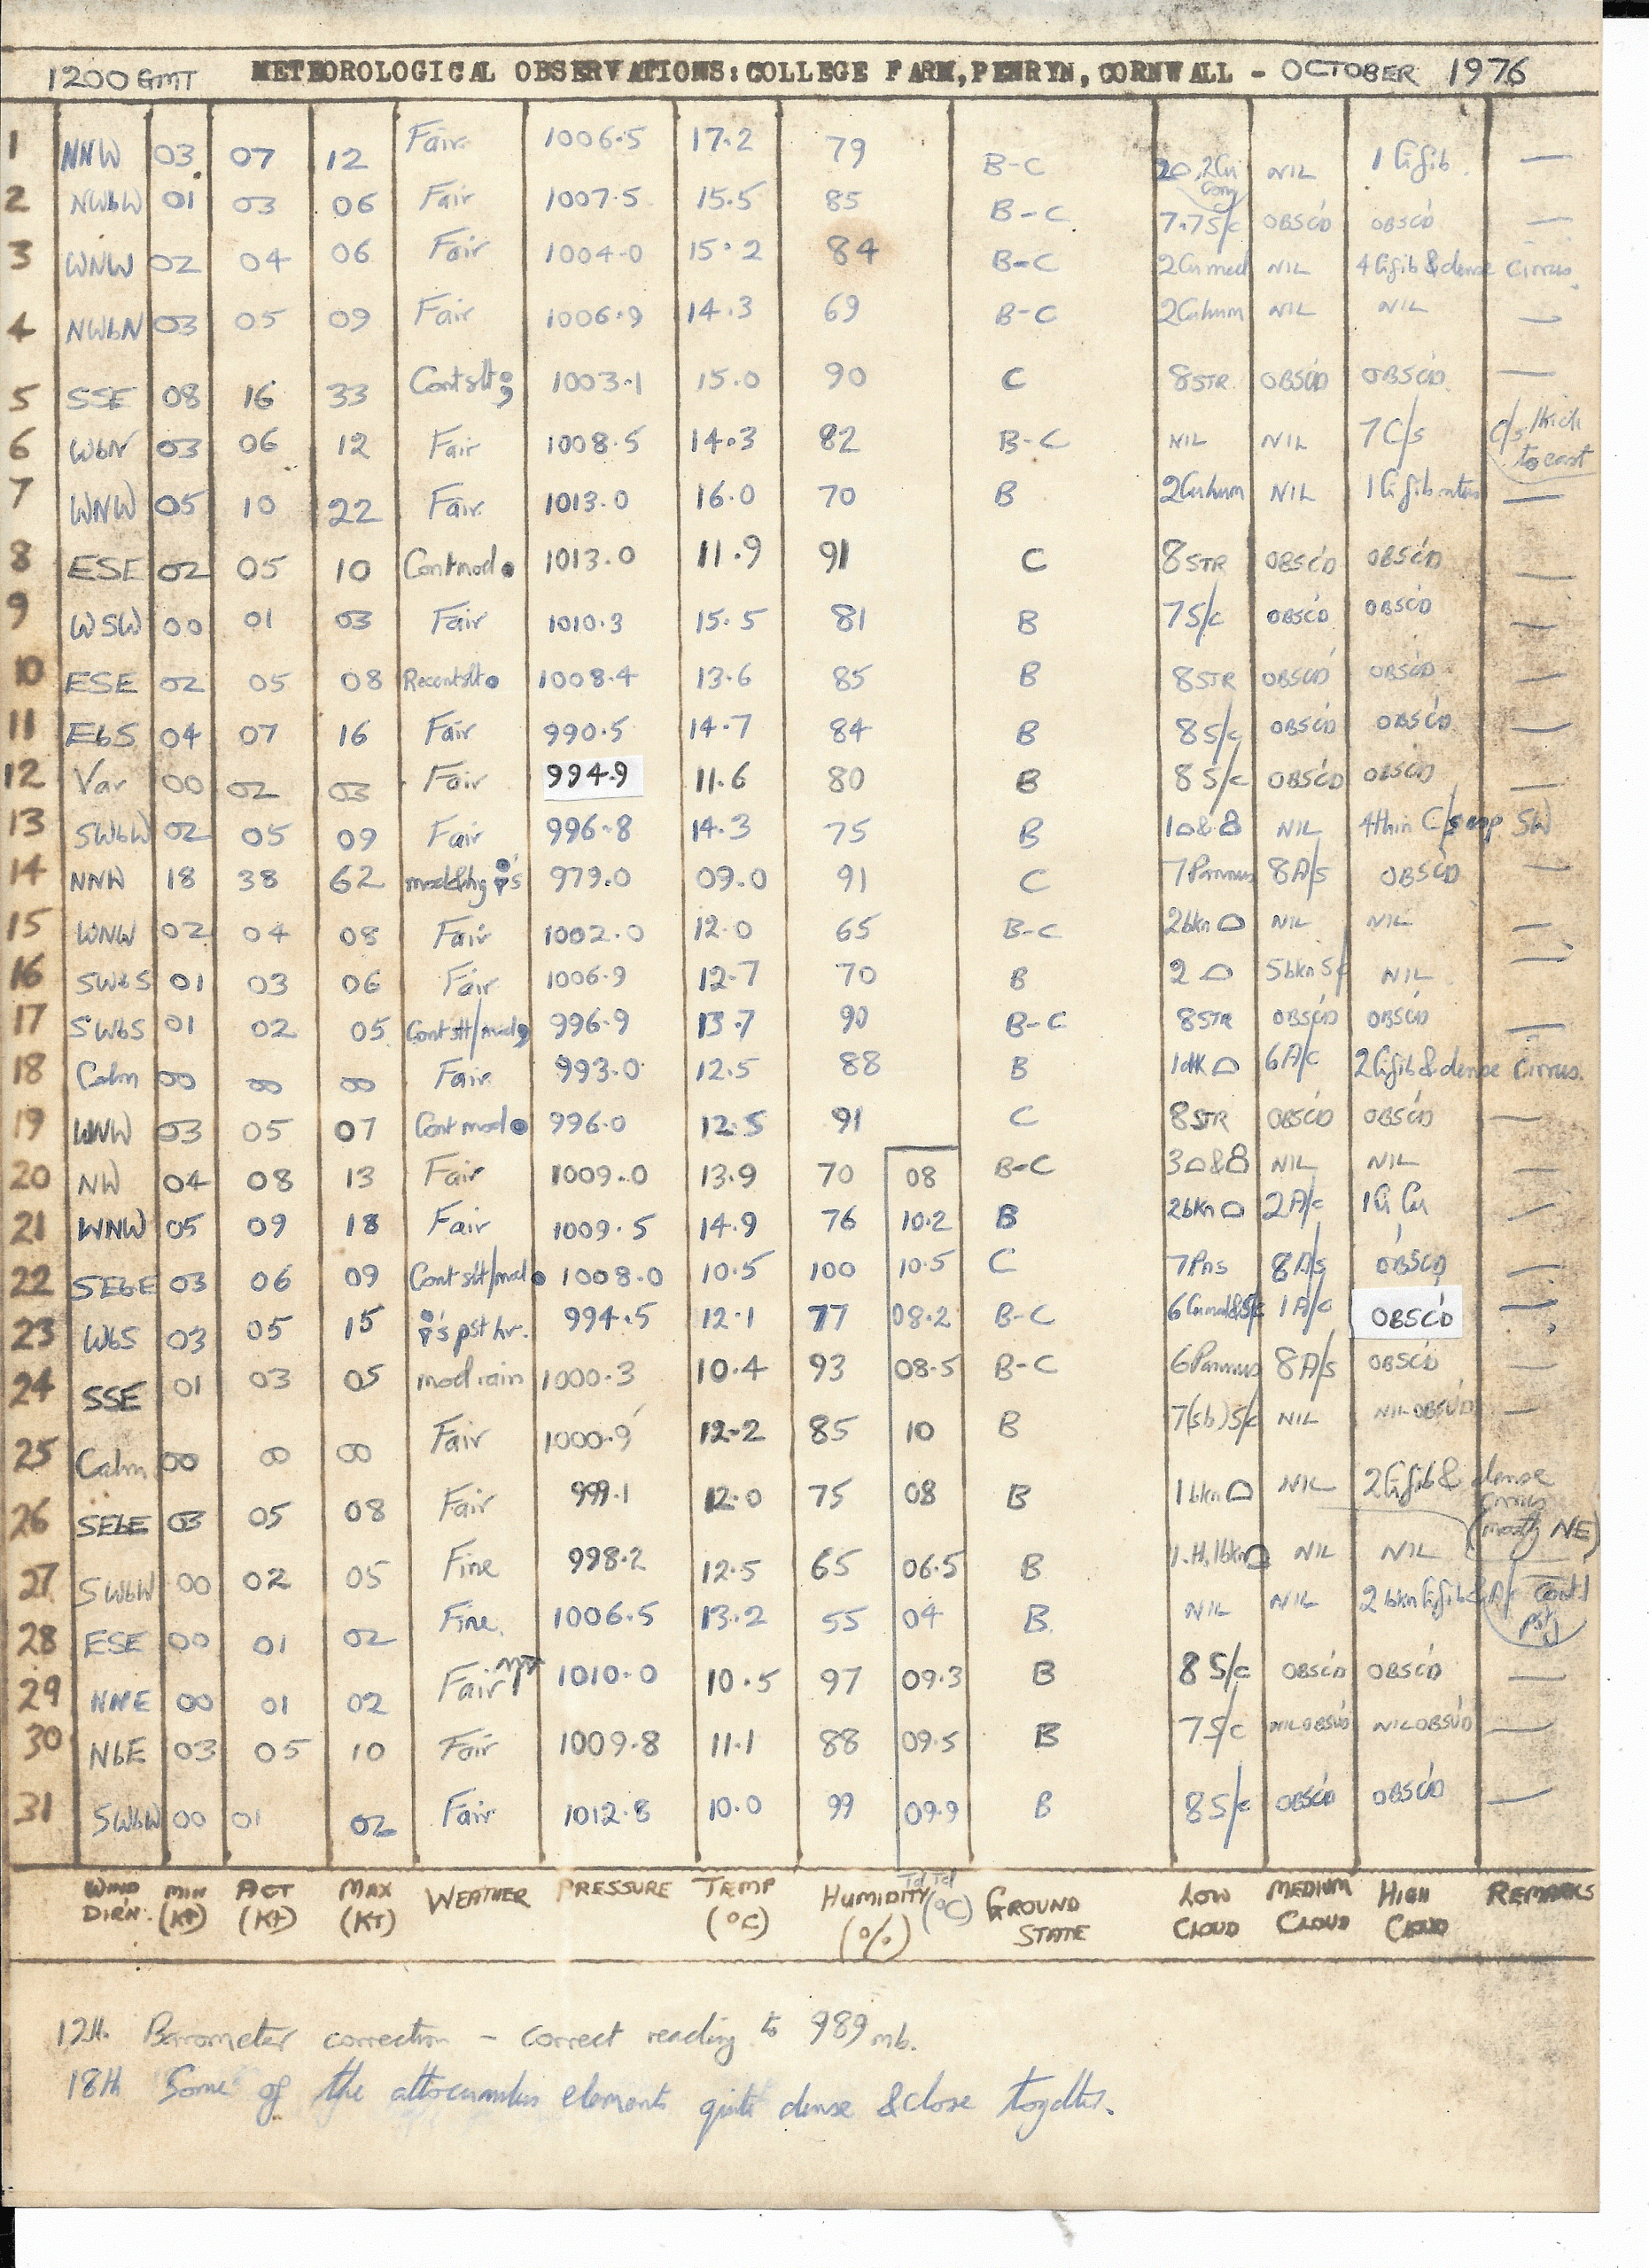 1200 GMT METEOROLOGICAL OBSERVATIONS: COLLEGE FARM, PENRYN, CORNWALL - OCTOBER 1976
1 NNW 03 07 12 Fair 1006.5 17.2 79 B-C NIL 1 Ci fib —
2 NWbW 01 03 06 Fair 1007.5 15.5 85 B-C 7.7S/c OBSC'D OBSC'D —
3 WNW 02 04 06 Fair 1004.0 15.2 84 B-C 2Cu med NIL 4 Ci fib & dense Cirrus.
4 NWbN 03 05 09 Fair 1006.9 14.3 69 B-C 2Cu hum NIL NIL —
5 SSE 08 16 33 Cont slt 1003.1 15.0 90 C 8 STR. OBSC'D OBSC'D —
6 WbN 03 06 12 Fair 1008.5 14.3 82 B-C NIL NIL 7 C/s C/s thick to east
7 WNW 05 10 22 Fair 1013.0 16.0 70 B 2Cu hum NIL 1 Ci fib —
8 ESE 02 05 10 Cont mod ● 1013.0 11.9 91 C 8 STR OBSC'D OBSC'D —
9 WSW 00 01 03 Fair 1010.3 15.5 81 B 7 S/c OBSC'D OBSC'D —
10 ESE 02 05 08 Recent slt ● 1008.4 13.6 85 B 8 STR OBSC'D OBSC'D —
11 EbS 04 07 16 Fair 990.5 14.7 84 B 8 S/c OBSC'D OBSC'D —
12 Var 00 02 03 Fair 994.9 11.6 80 B 8 S/c OBSC'D OBSC'D —
13 SWbW 02 05 09 Fair 996.8 14.3 75 B 1 & NIL 4 thin C/s esp SW
14 NNW 18 38 62 mod & hvy 's 979.0 09.0 91 C 7 Pannus 8 A/s OBSC'D —
15 WNW 02 04 08 Fair 1002.0 12.0 65 B-C 2 bkn NIL NIL —
16 SWbS 01 03 06 Fair 1006.9 12.7 70 B 2 5 bkn NIL —
17 SWbS 01 02 05 Cont slt/mod 996.9 13.7 90 B-C 8 STR OBSC'D OBSC'D —
18 Calm 00 00 00 Fair 993.0 12.5 88 B 1 6 A/c 2 Ci fib & dense Cirrus.
19 WNW 03 05 07 Cont mod ● 996.0 12.5 91 C 8 STR OBSC'D OBSC'D —
20 NW 04 08 13 Fair 1009.0 13.9 70 08 B-C 3 & NIL NIL
21 WNW 05 09 18 Fair 1009.5 14.9 76 10.2 B 2 bkn 2 A/c 1 Ci Cu —
22 SEbE 03 06 09 Cont slt/mod ● 1008.0 10.5 100 10.5 C 7 Pns 8 A/s OBSC'D —
23 WbS 03 05 15 's pst hr. 994.5 12.1 77 08.2 B-C 6 Cu med & S/c 1 A/c OBSC'D —
24 SSE 01 03 05 mod rain 1000.3 10.4 93 08.5 B-C 6 Pannus 8 A/s OBSC'D —
25 Calm 00 00 00 Fair 1000.9 12.2 85 10 B 7(sb) S/c NIL NIL OBSV'D —
26 SEbE 03 05 08 Fair 999.1 12.0 75 08 B 1 bkn NIL 2 Ci fib & dense cirrus (mostly NE)
27 SWbW 00 02 05 Fine 998.2 12.5 65 06.5 B NIL NIL —
28 ESE 00 01 02 Fine. 1006.5 13.2 55 04 B. NIL NIL 2 bkn Ci fib
29 NNE 00 01 02 Fair 1010.0 10.5 97 09.3 B 8 S/c OBSC'D OBSC'D —
30 NbE 03 05 10 Fair 1009.8 11.1 88 09.5 B 7 S/c NIL OBSV'D NIL OBSV'D —
31 SWbW 00 01 02 Fair 1012.8 10.0 99 09.9 B 8 S/c OBSC'D OBSC'D —
WIND DIRN. MIN (KT) ACT (KT) MAX (KT) WEATHER PRESSURE TEMP (°C) HUMIDITY (%) Td Td (°C) GROUND STATE LOW CLOUD MEDIUM CLOUD HIGH CLOUD REMARKS
12th. Barometer correction - correct reading to 989 mb.
18th Some of the altocumulus elements quite dense & close together.